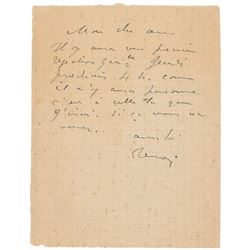 Mon cher ami
Il y aura une première
répétition Gén^le Jeudi
prochain 4 h. comme
il n'y aura personne
c'est à celle là que
j'irai. Si ça vous va
venez.
amitié
Renoir